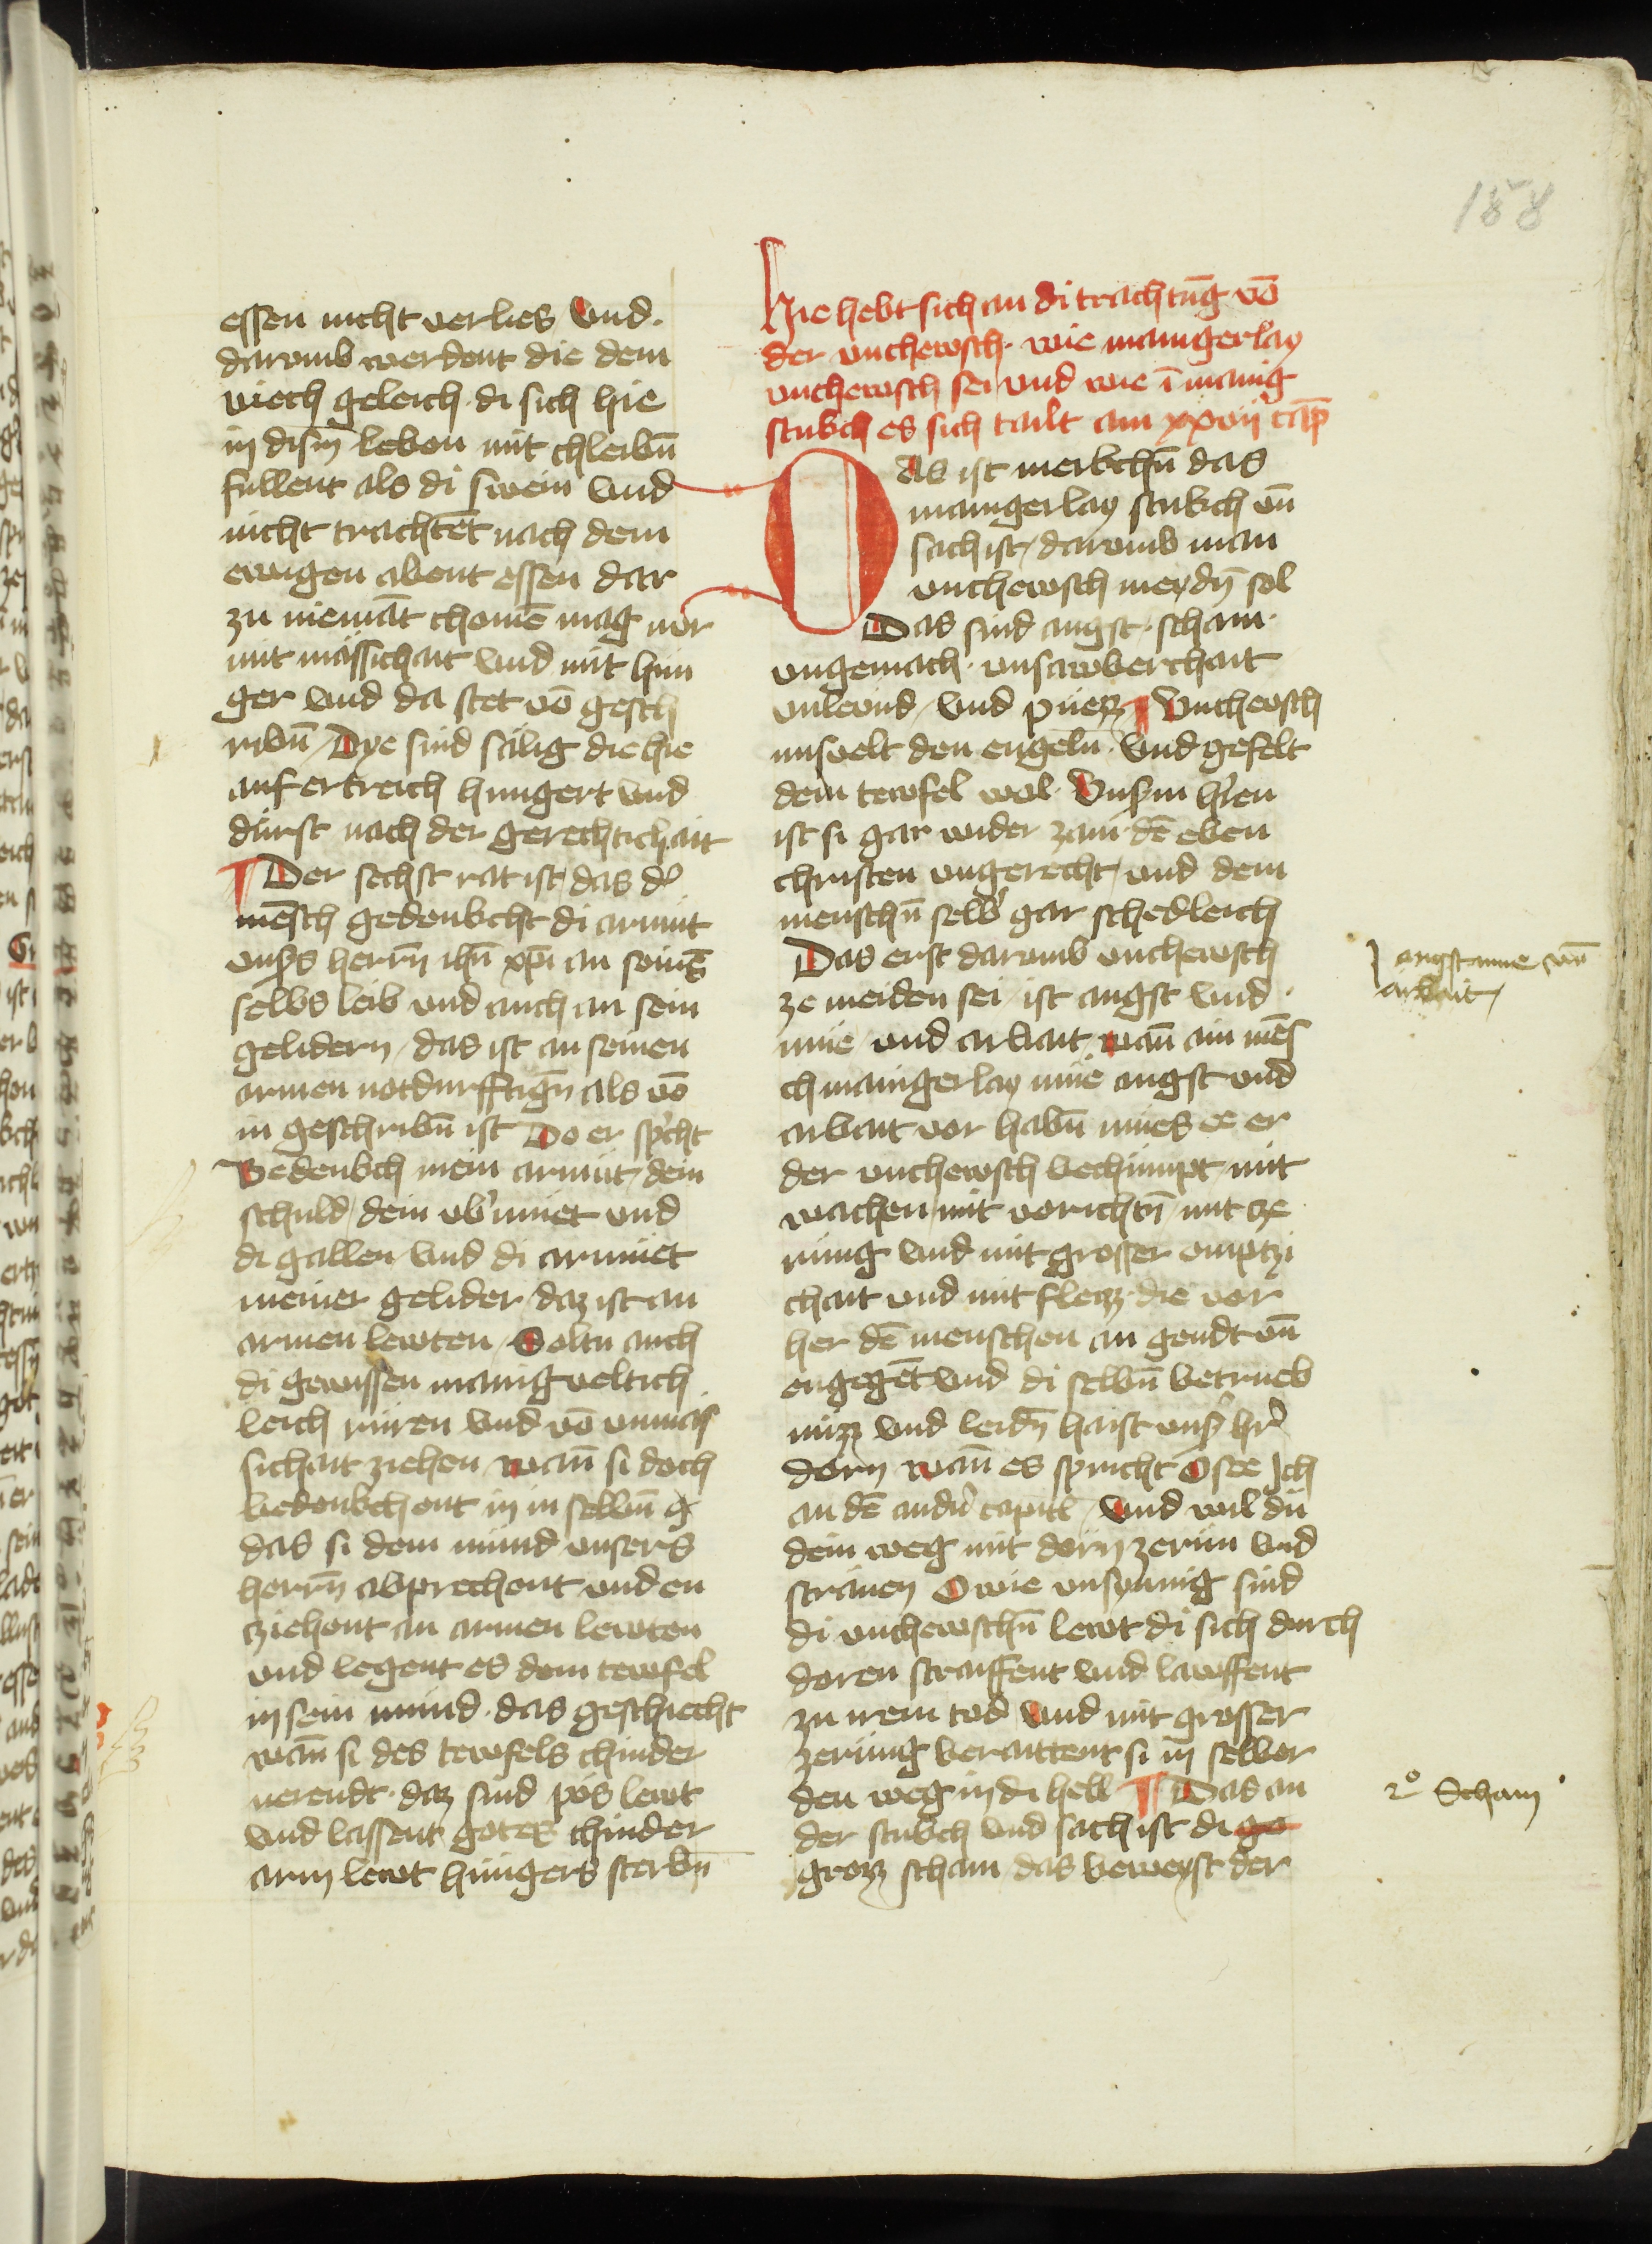 158
essen nicht verlies Und.
darumb werdent die dem
viech geleich di sich hie
in dism̄ leben mit chleibn̄
fullent als di swein Und
nicht trachtēt nach dem
ewigen abent essen dar
zu niemāt chomē mag nůr
mit mässichait Und mit hun
ger Und da stet vō gesch
ribn̄ / Dye sind sälig die hie
auf ertreich hungert Und
dürst nach der gerechtichait
¶ Der sechst rat ist / das dˀ
mēsch gedenkcht di armüt
unsˀs herrn̄ ihū xpī an seinē
selbs leib und auch an sein
gelidern / das ist an seinen
armen notdurfftign̄ als vō
in geschribn̄ ist Do er spˀcht
Bedenkch mein armüt / dein
schuld / dein vbˀmüet und
di gallen Und di armüet
meiner gelider / daz ist an
armen lewten / Soltu auch
di gewissen manigveltich
leich rüren Und vō unmäs
sichait ziehen wañ si doch
bedenkchent in in selbn̄
das si dem mund unsers
herrn̄ abprechent und en
cziehent an armen lewten
und legent es dem tewfel
in sein mund · das geschiecht
wañ si des tewfels chinder
nerendt · daz sind pös lewt
Und lassent gotes chinder
arm lewt hungers sterbn̄
Hie hebt sich an di trachtūg vō
der unchewsch · wie manigerlay
unchewsch sei und wie ī manig
stukch es sich tailt am xxvii cap̄
Das ist merkchn̄ das
manigerlay stukch un̄
sach ist / darumb man
unchewsch meydn̄ sol
Das sind angst · scham ·
ungemach · unsawberchait
unlevnd / Und püezz ¶ Unchewsch
misvelt den engeln · Und gefelt
dem tewfel wol · Unsˀm hˀren
ist si gar wider zam · dē eben
christen ungerecht / und dem
menschn̄ selbˀ gar schedleich
Das erst darumb unchewsch
ze meiden sei / ist angst Und
müe / und arbait / wañ ain mēs
ch manigerlay müe angst und
arbait vor habn̄ mües ee er
der unchewsch bechümpt / mit
wachen / mit vorichtn̄ / mit ze
rung Und mit grosser emptzi
chait und mit fleizz · die vor
her dē menschen an gendt un̄
engegēt Und di selbn̄ betrueb
nüzz Und leidn̄ haist unsˀ hˀr
dorn wañ es spricht Osee Ich
an dē andˀn capitl / Und wil dir
dein weg mit dorn zerun Und
sträwen O wie unsynnig sind
di unchewschn̄ lewt di sich durch
doren straiffent Und lawffent
zu irem tod Und mit grosser
zerung beraittent si in selber
den weg in di hell ¶ Das an
der stukch und sach ist di go
grozz scham das beweyst der
angst müe un̄
arbait /
2º Scham